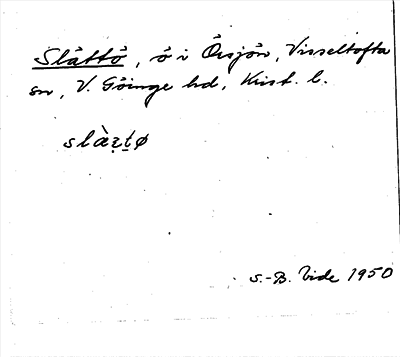 Slättö, ö i Örsjön, Visseltofta
sn, V. Göinge hd, Krist. l.
slàꭋṯø
S.-B. Vide 1950